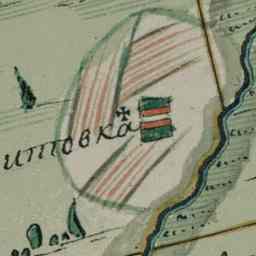 итовка